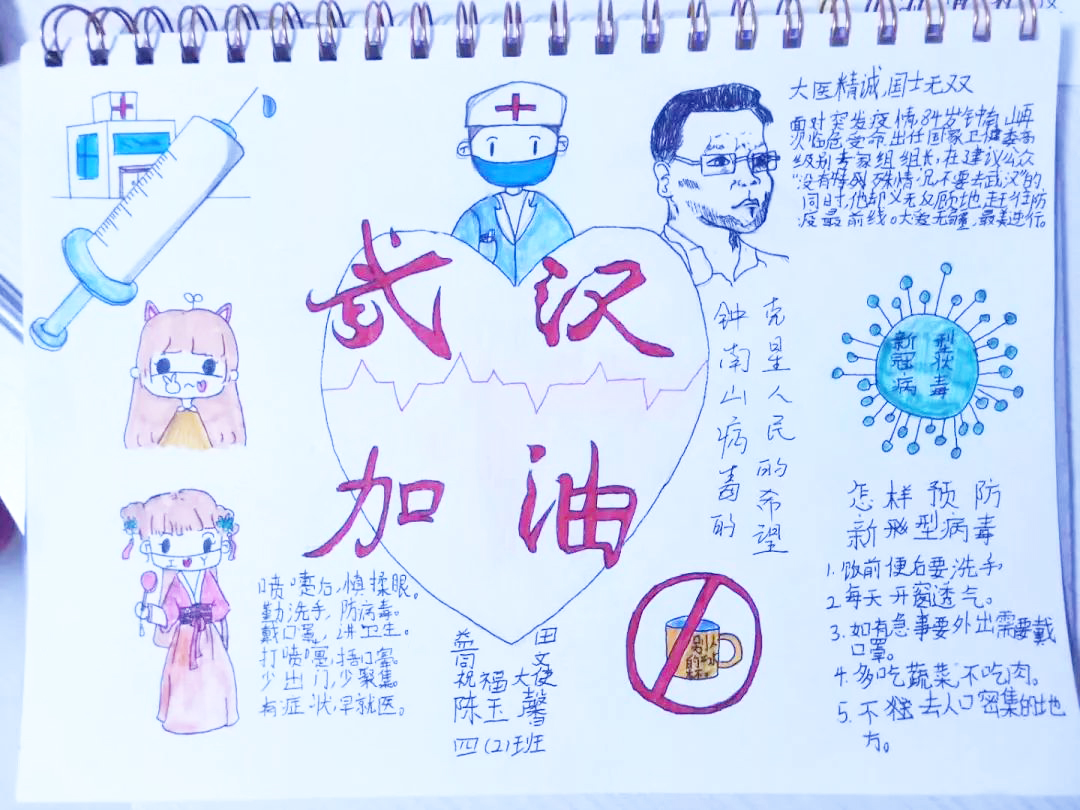 大医精诚,国士无双
面对突发疫情,84岁钟南山再
次临危受命,出任国家卫健委高
级别专家组组长,在建议公众
“没有特殊情况,不要去武汉”的
同时,他却义无反顾地赶往防
疫最前线。大爱无疆,最美逆行。
武汉
加油
钟南山病毒的
克星人民的希望
新型
冠状
病毒
怎样预防
新冠型病毒
1.饭前便后要洗手
2.每天开窗透气。
3.如有急事要外出需要戴
口罩。
4.多吃蔬菜不吃肉。
5.不能去人口密集的地
方。
喷嚏后,慎揉眼。
勤洗手,防病毒。
戴口罩,讲卫生。
打喷嚏,捂口鼻。
少出门,少聚集。
有症状,早就医。
益田
同文
祝福大使
陈玉馨
四(2)班
别人
的水
杯